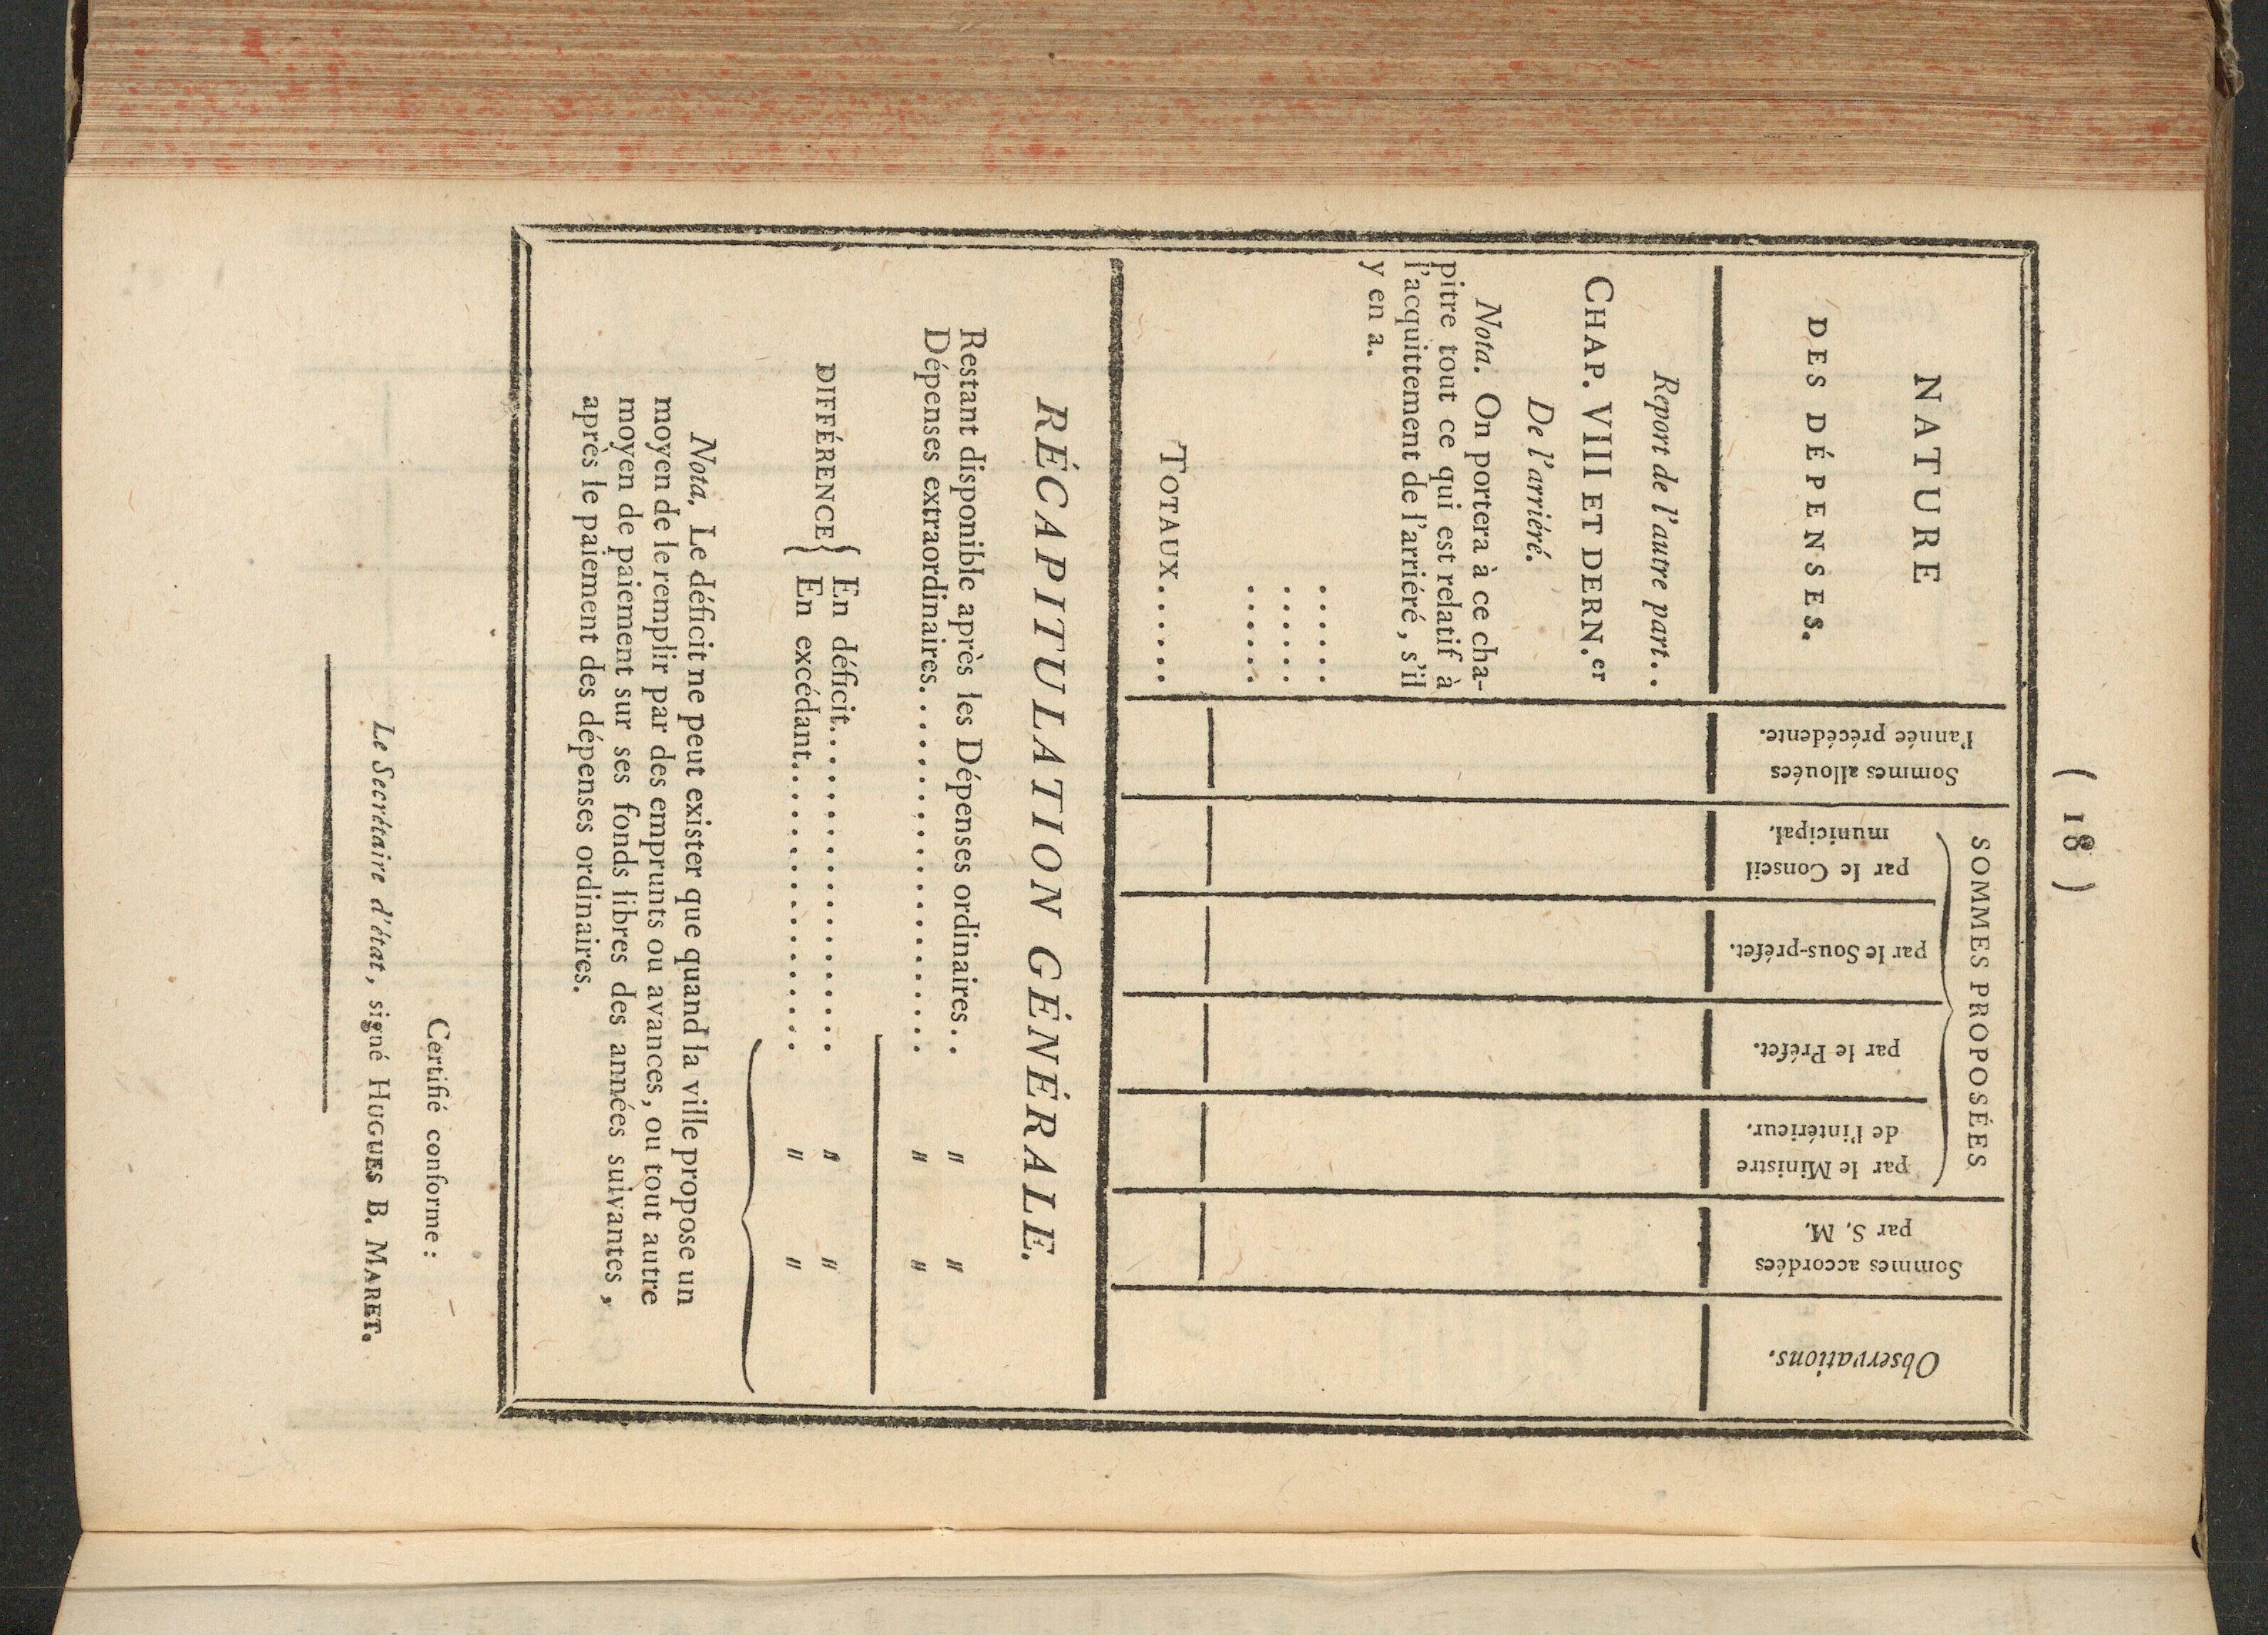 ( 18 )
NATURE
DES DÉPENSES.
Sommes allouées
l'année précédente.
SOMMES PROPOSÉES
par le Conseil
municipal.
par le Sous-préfet.
par le Préfet.
par le Ministre
de l'intérieur.
Sommes accordées
par S. M.
Observations.
Report de l'autre part..
CHAP. VIII ET DERN.er
De l'arriéré.
Nota. On portera à ce cha-
pitre tout ce qui est relatif à
l'acquittement de l'arriéré, s'il
y en a.
......
......
......
TOTAUX......
RÉCAPITULATION GÉNÉRALE.
Restant disponible après les Dépenses ordinaires.. " "
Dépenses extraordinaires.................... " "
DIFFÉRENCE { En déficit.................. " "
En excédant................ " "
Nota. Le déficit ne peut exister que quand la ville propose un
moyen de le remplir par des emprunts ou avances, ou tout autre
moyen de paiement sur ses fonds libres des années suivantes,
après le paiement des dépenses ordinaires.
Certifié conforme :
Le Secrétaire d'état, signé HUGUES B. MARET.